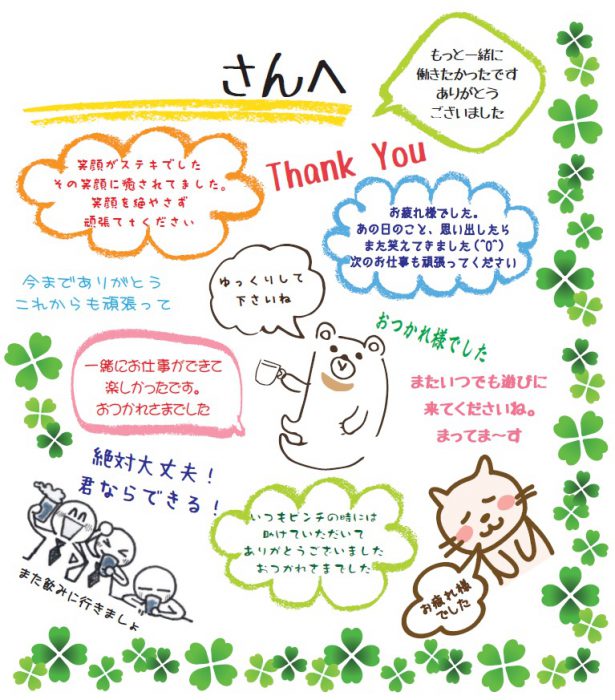 さんへ
もっと一緒に
働きたかったです
ありがとう
ございました
笑顔がステキでした
その笑顔に癒されてました。
笑顔を絶やさず
頑張てｔください
Thank You
お疲れ様でした。
あの日のこと、思い出したら
また笑えてきました(^0^)
次のお仕事も頑張ってください
今までありがとう
これからも頑張って
ゆっくりして
下さいね
おつかれ様でした
一緒にお仕事ができて
楽しかったです。
おつかれさまでした
またいつでも遊びに
来てくださいね。
まってま～す
絶対大丈夫！
君ならできる！
いつもピンチの時には
助けていただいて
ありがとうございました
おつかれさまでした
また飲みに行きましょ
お疲れ様
でした